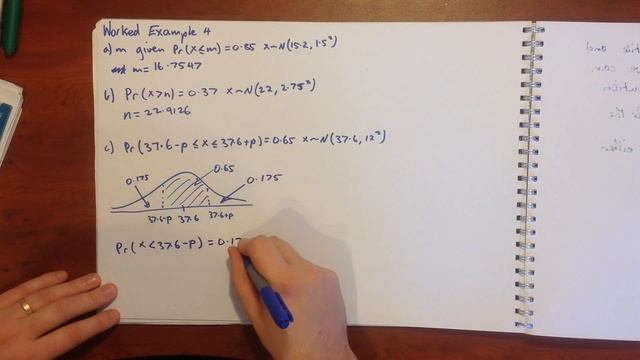 Worked Example 4
a) m given Pr(X≤m)=0.85 X~N(15.2, 1.5²)
m=16.7547
b) Pr(X>n)=0.37 X~N(22, 2.75²)
n=22.9126
c) Pr(37.6-p ≤ X ≤ 37.6+p)=0.65 X~N(37.6, 12²)
0.65
0.175
0.175
37.6-p 37.6 37.6+p
Pr(X<37.6-p)=0.17